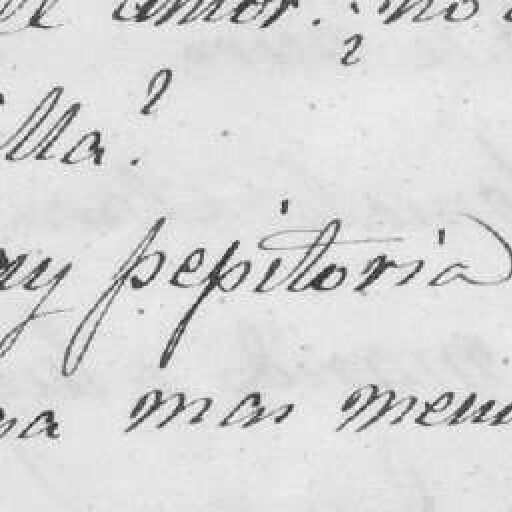 amor. ¿no
lla?
ay pepitoria
na mas menu